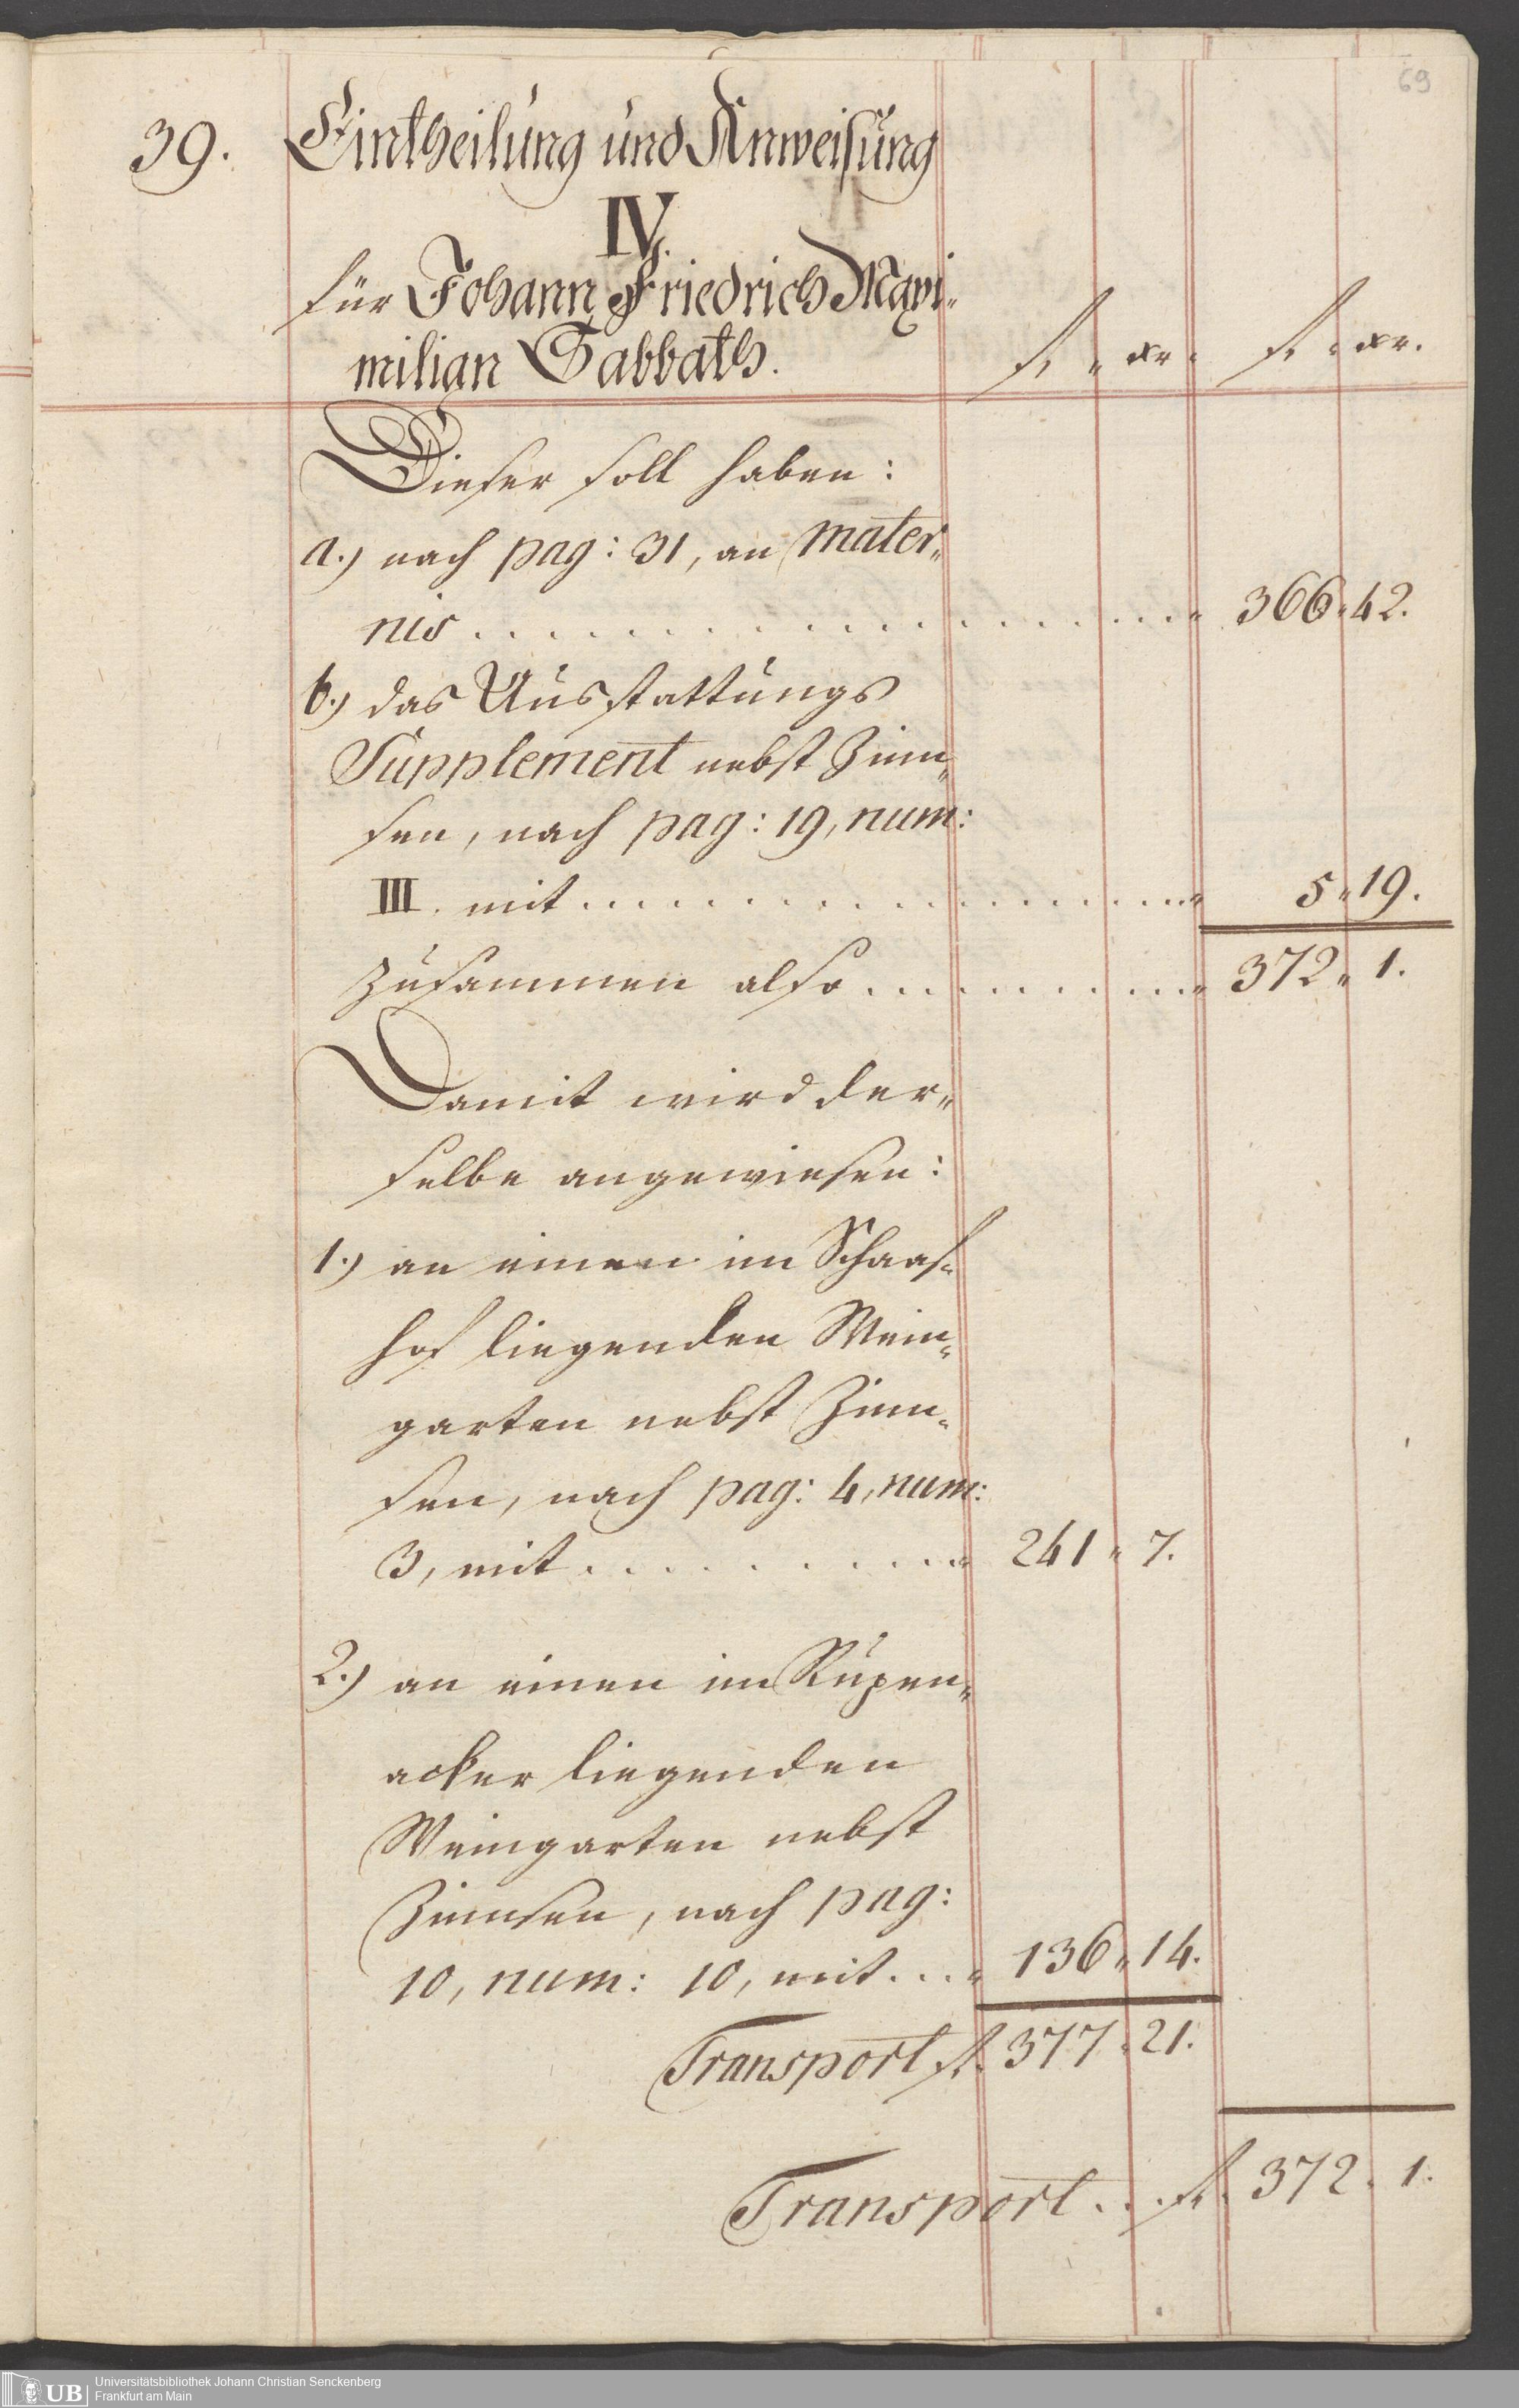 69
39. Eintheilung und Anweisung
IV.
für Johann Friedrich Maxi„
milian Sabbath.
fl. „ xr. fl. „ xr.
Dieser soll haben:
a.) nach pag: 31, an mater„
nis . . . . . . . . . . „ 366 „ 42.
b.) das Ausstattungs
Supplement nebst Zinn„
sen, nach pag: 19, num:
III. mit . . . . . . . . . . „ 5 „ 19.
zusammen also . . . . . . . . „ 372 „ 1.
Damit wird der„
selbe angewiesen:
1.) an einen im Schaaf„
hof liegenden Wein„
garten nebst Zinn„
sen, nach pag: 4, num:
3, mit . . . . . . . . . „ 241 „ 7.
2.) an einen im Rupen„
acker liegenden
Weingarten nebst
Zinnsen, nach pag:
10, num: 10, mit . . . „ 136 „ 14.
Transport fl. 377 „ 21.
Transport . . . fl. 372 „ 1.
UB
Universitätsbibliothek Johann Christian Senckenberg
Frankfurt am Main